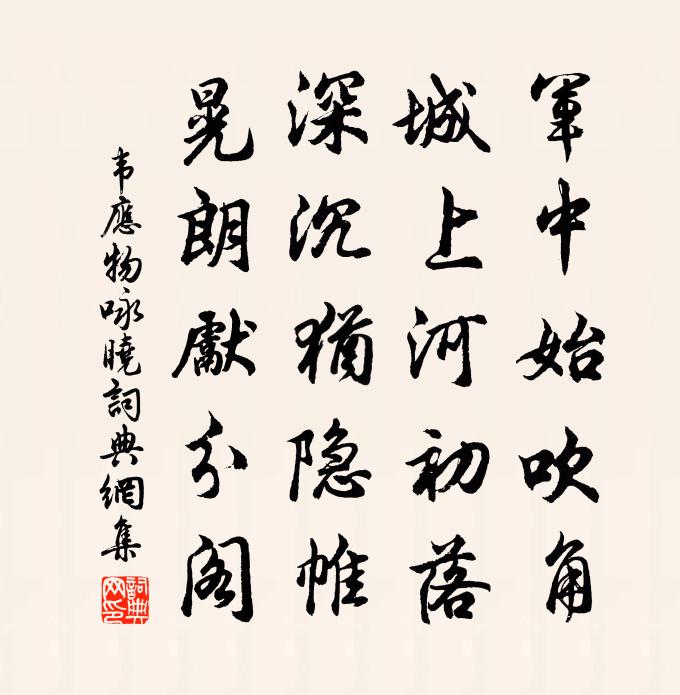 軍中始吹角
城上河初落
深沉猶隐帷
晃朗獻分阁
韦應物咏曉詞典網集
詞典网印